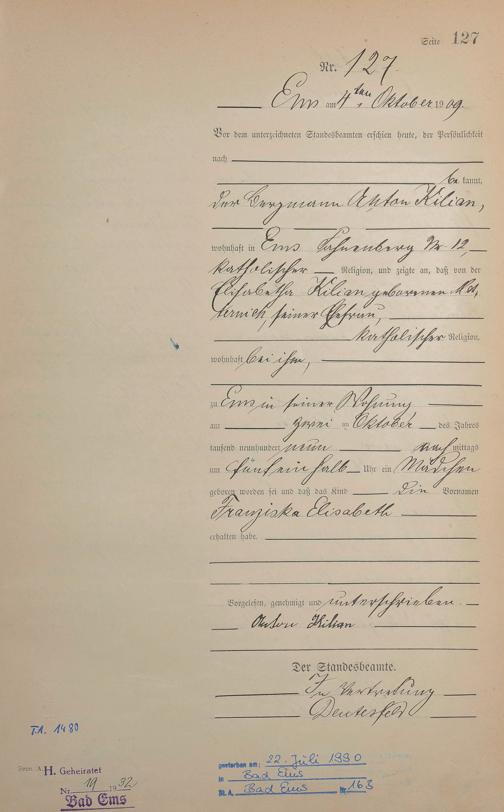 Seite 127
Nr. 127.
Ems am 4ten Oktober 1909.
Vor dem unterzeichneten Standesbeamten erschien heute, der Persönlichkeit
nach
be kannt,
der Bergmann Anton Kilian,
wohnhaft in Ems Nr 12,
katholischer Religion, und zeigte an, daß von der
Elisabetha Kilian geborenen
seiner Ehefrau,
katholischer Religion,
wohnhaft bei ihm,
zu Ems in seiner Wohnung
am zwei ten Oktober des Jahres
tausend neunhundert neun nach mittags
um fünfeinhalb Uhr ein Mädchen
geboren worden sei und daß das Kind die Vornamen
Franziska Elisabeth
erhalten habe.
Vorgelesen, genehmigt und unterschrieben.
Anton Kilian
Der Standesbeamte.
In Vertretung
T.A. 1480
H. Geheiratet
Nr. 19 1932
Bad Ems
gestorben am: 22. Juli 1990
in Bad Ems
St.A. Bad Ems Nr. 163